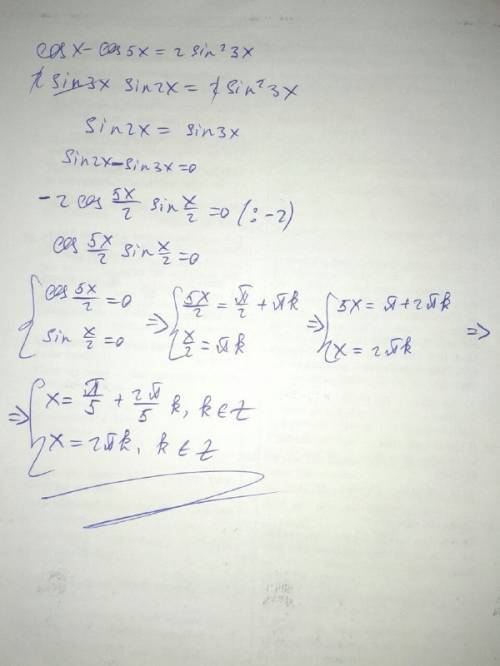 cos x - cos 5x = 2 sin² 3x
2 sin 3x sin 2x = 2 sin² 3x
sin 2x = sin 3x
sin 2x - sin 3x = 0
-2 cos 5x/2 sin x/2 = 0 (: -2)
cos 5x/2 sin x/2 = 0
{ cos 5x/2 = 0 => { 5x/2 = π/2 + πk => { 5x = π + 2πk =>
{ sin x/2 = 0 { x/2 = πk { x = 2πk
=> { x = π/5 + 2π/5 k, k ∈ Z
{ x = 2πk, k ∈ Z